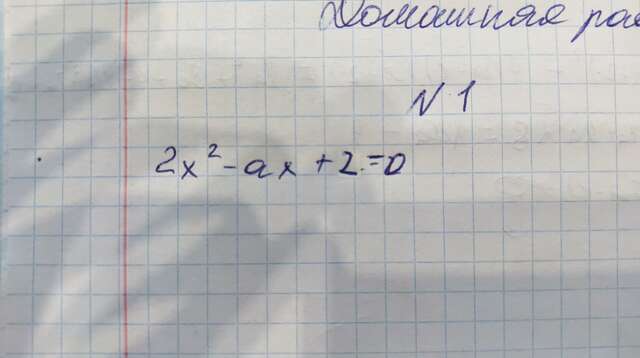 Домашняя
N 1
2x² - ax + 2 = 0